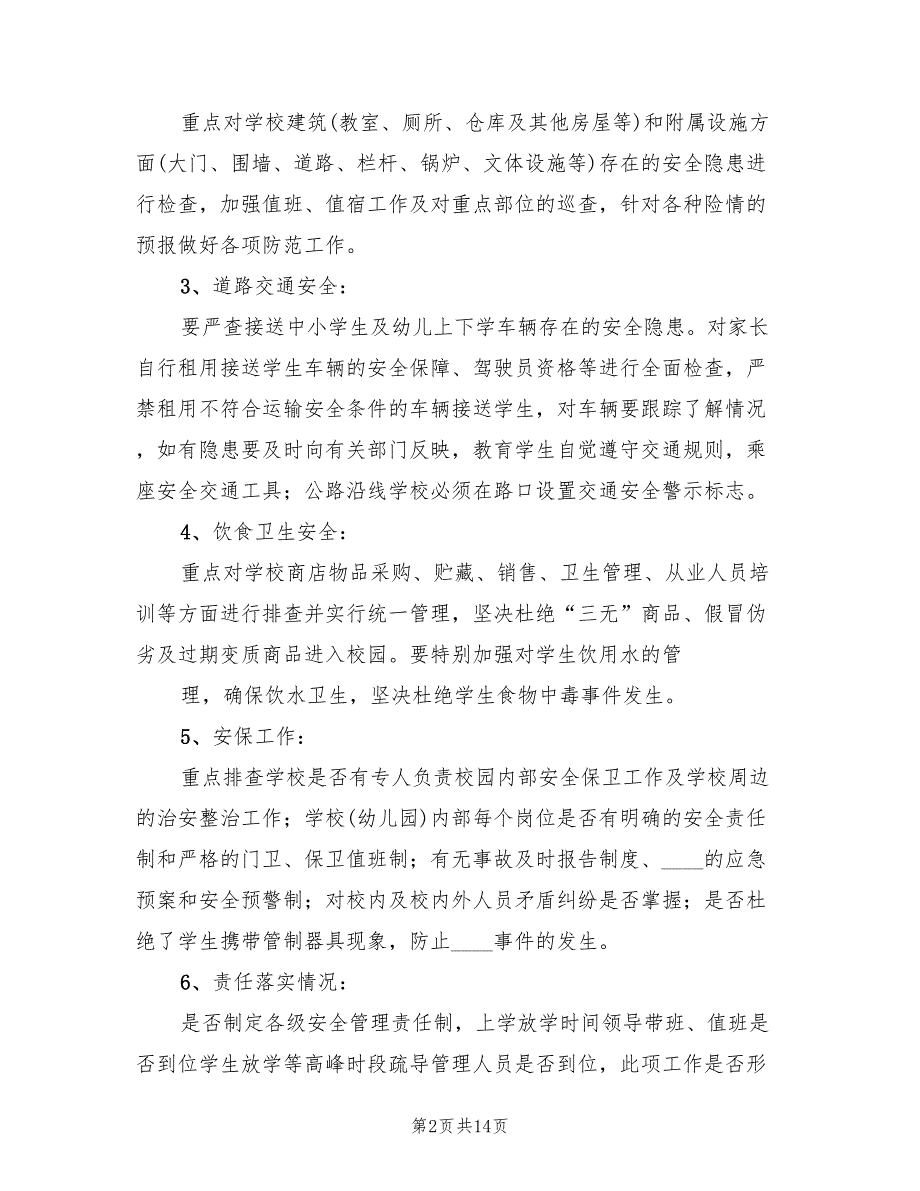 重点对学校建筑(教室、厕所、仓库及其他房屋等)和附属设施方
面(大门、围墙、道路、栏杆、锅炉、文体设施等)存在的安全隐患进
行检查，加强值班、值宿工作及对重点部位的巡查，针对各种险情的
预报做好各项防范工作。
3、道路交通安全：
要严查接送中小学生及幼儿上下学车辆存在的安全隐患。对家长
自行租用接送学生车辆的安全保障、驾驶员资格等进行全面检查，严
禁租用不符合运输安全条件的车辆接送学生，对车辆要跟踪了解情况
，如有隐患要及时向有关部门反映，教育学生自觉遵守交通规则，乘
座安全交通工具；公路沿线学校必须在路口设置交通安全警示标志。
4、饮食卫生安全：
重点对学校商店物品采购、贮藏、销售、卫生管理、从业人员培
训等方面进行排查并实行统一管理，坚决杜绝“三无”商品、假冒伪
劣及过期变质商品进入校园。要特别加强对学生饮用水的管
理，确保饮水卫生，坚决杜绝学生食物中毒事件发生。
5、安保工作：
重点排查学校是否有专人负责校园内部安全保卫工作及学校周边
的治安整治工作；学校(幼儿园)内部每个岗位是否有明确的安全责任
制和严格的门卫、保卫值班制；有无事故及时报告制度、____的应急
预案和安全预警制；对校内及校内外人员矛盾纠纷是否掌握；是否杜
绝了学生携带管制器具现象，防止____事件的发生。
6、责任落实情况：
是否制定各级安全管理责任制，上学放学时间领导带班、值班是
否到位学生放学等高峰时段疏导管理人员是否到位，此项工作是否形
第2页共14页